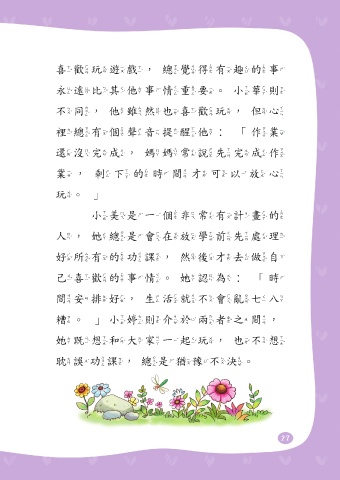 喜歡玩遊戲，總覺得有趣的事
永遠比其他事情重要。小華則
不同，他雖然也喜歡玩，但心
裡總有個聲音提醒他：「作業
還沒完成，媽媽常說先完成作
業，剩下的時間才可以放心
玩。」
小美是一個非常有計畫的
人，她總是會在放學前先處理
好所有的功課，然後才去做自
己喜歡的事情。她認為：「時
間安排好，生活就不會亂七八
糟。」小婷則介於兩者之間，
她既想和大家一起玩，也不想
耽誤功課，總是猶豫不決。
27